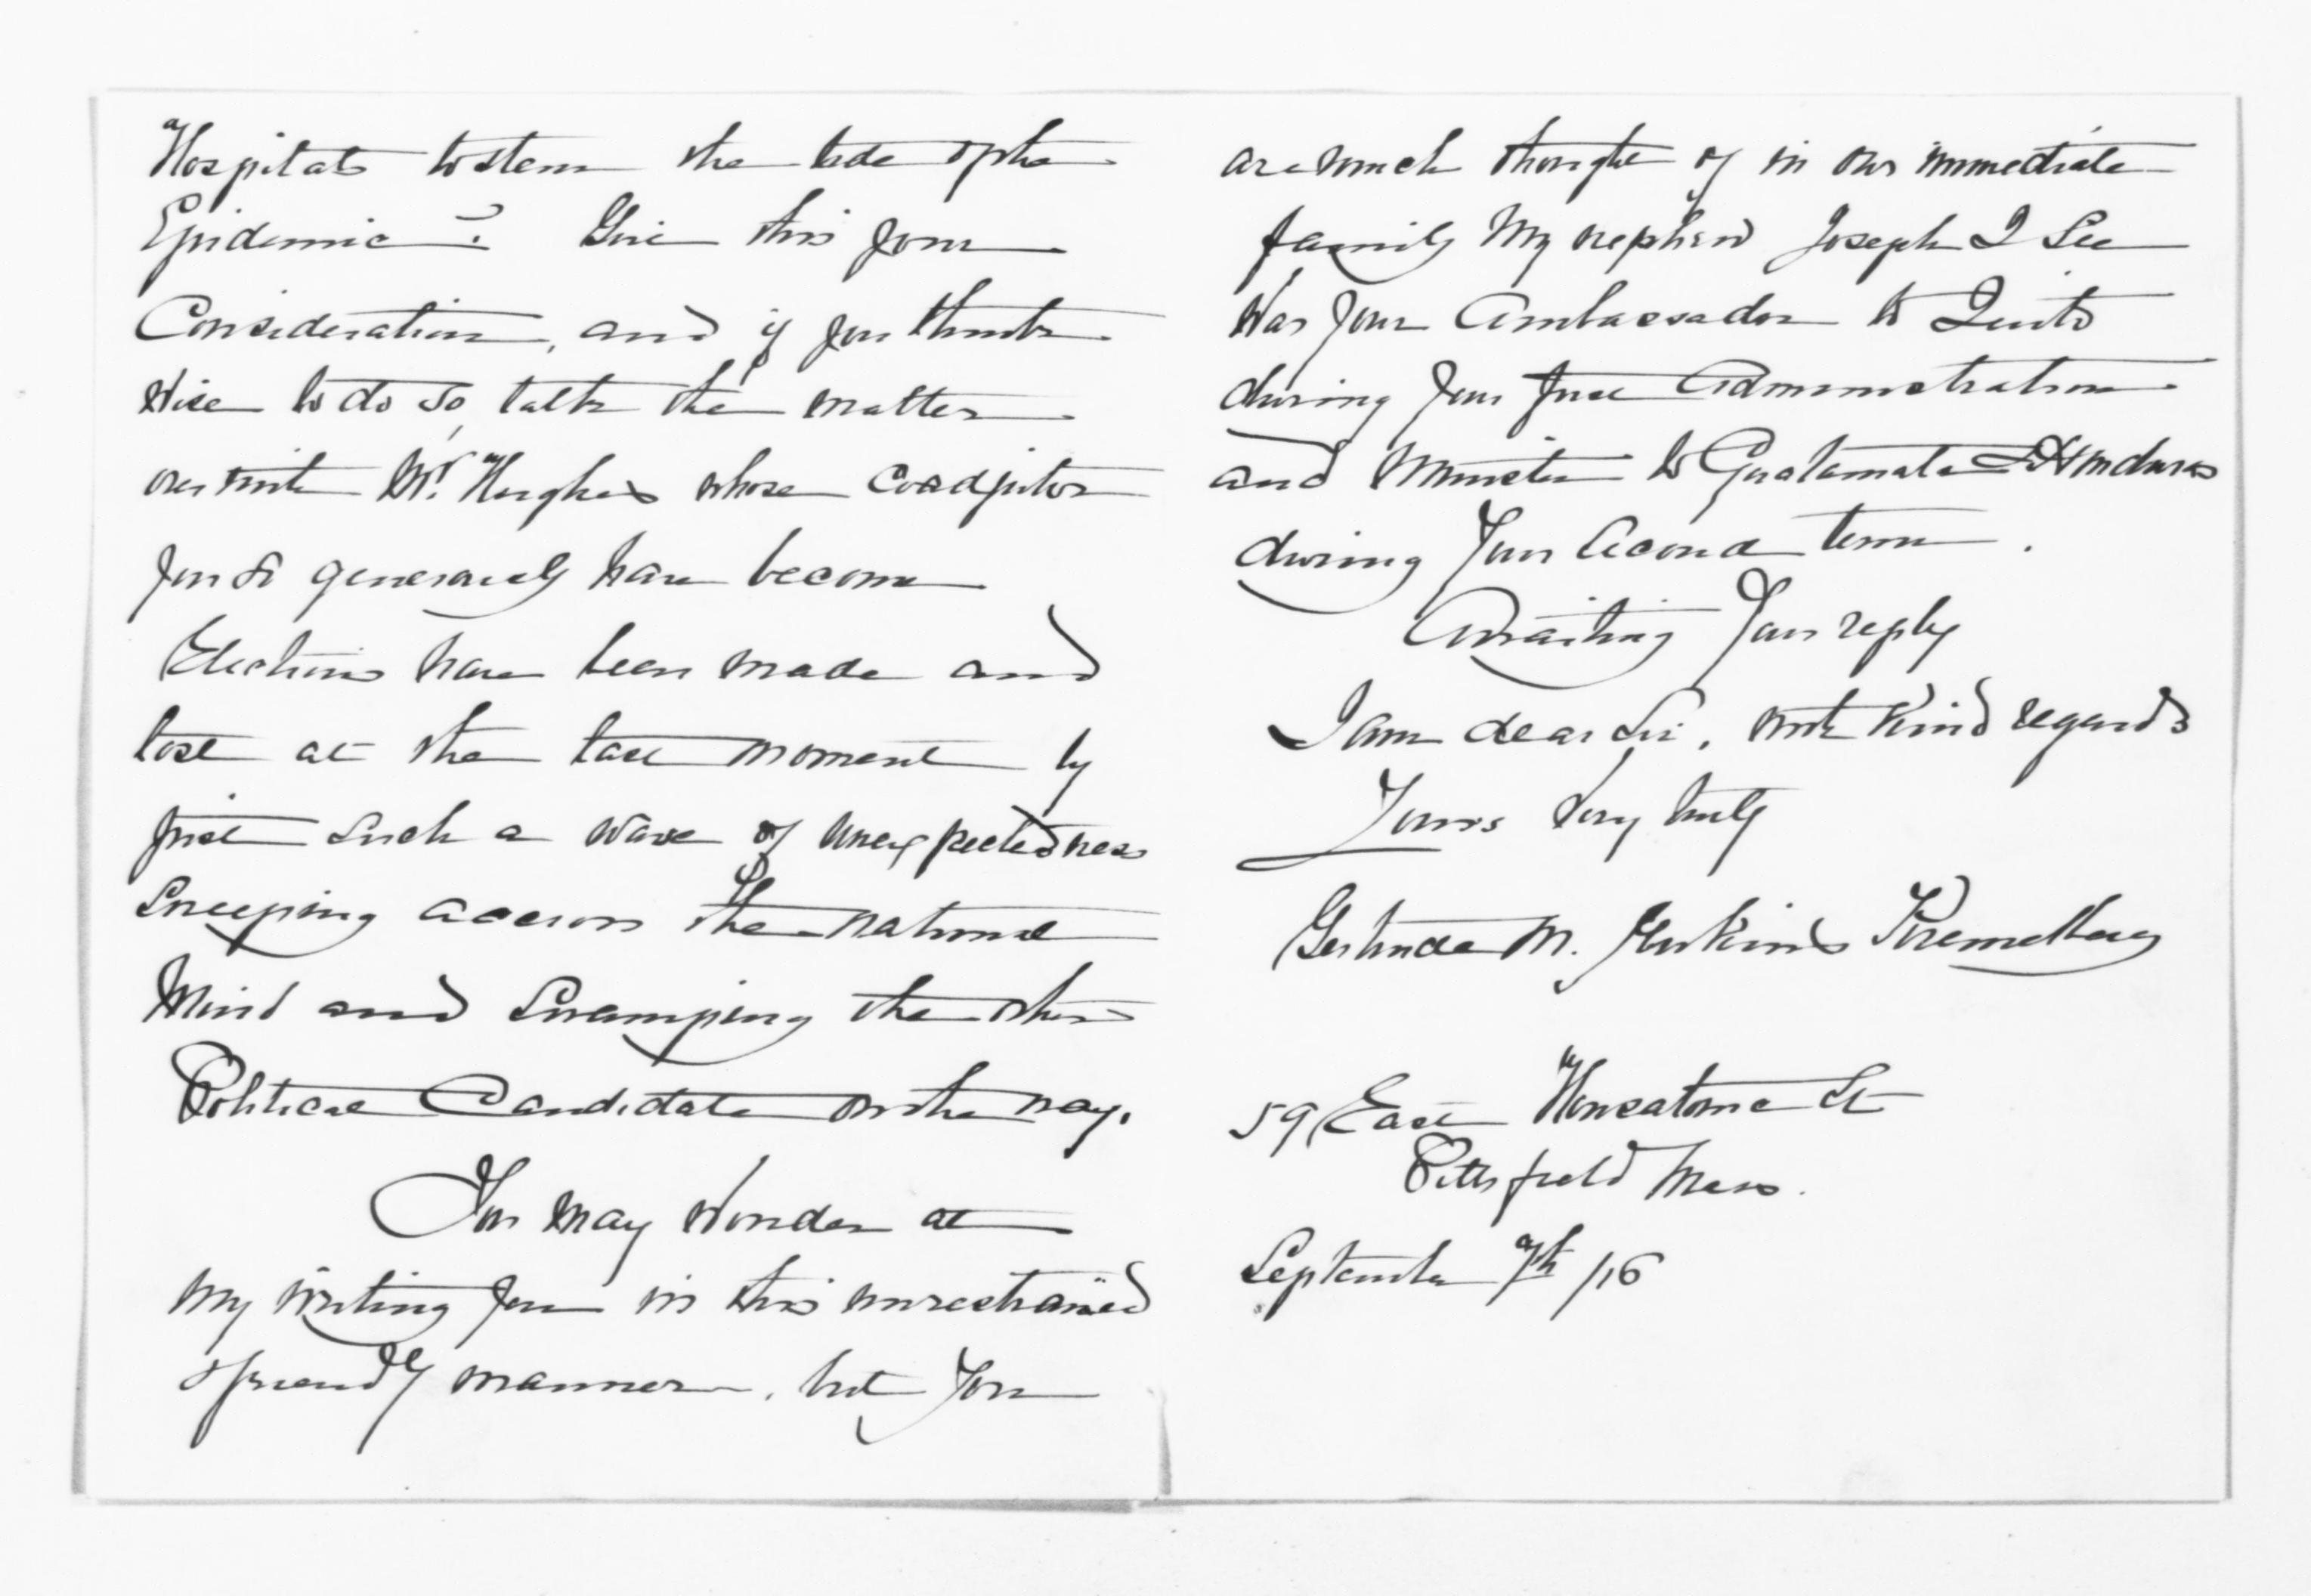 Hospitals to stem the tide of the
Epidemic? Give this your
Consideration, and if you think
Wise to do so, talk the matter
over with Mr. Hughes whose Coadjutor
you so generously have become
Elections have been made and
lost at the last moment by
just such a wave of unexpectedness
Sweeping accross the national
Mind and Swamping the other
Political Candidate on the way.
You may Wonder at
my writing you in this unrestrained
friendly manner, but you
are much thought of in our immediate
family My nephew Joseph J Lee
Was your Ambassador to Quito
during your first Administration
and Minister to Guatamala & Honduras
during Your Second term.
Awaiting Your reply
I am dear Sir, with Kind regards
Yours Very truly
Gertrude M. Jenkins Kremelberg
59 East Housatonic St
Pittsfield Mass.
September 7th /16